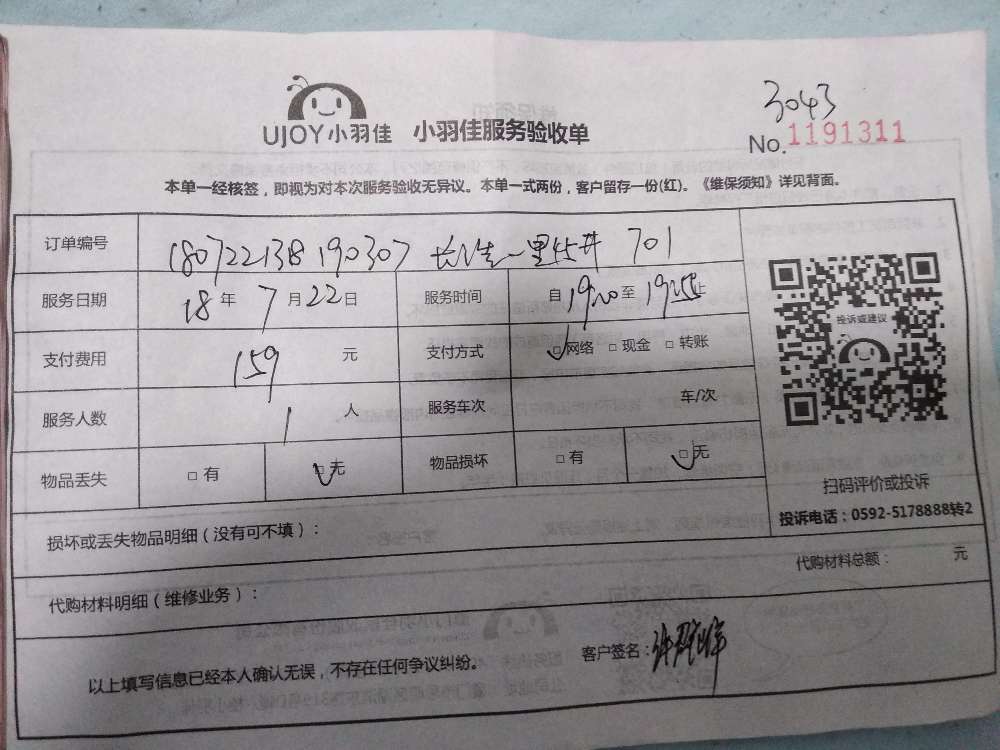 3043
UJOY小羽佳 小羽佳服务验收单
No.1191311
本单一经核签，即视为对本次服务验收无异议。本单一式两份，客户留存一份(红)。《维保须知》详见背面。
订单编号 180722138190307 701
服务日期 18年7月22日 服务时间 自1920至1955止
支付费用 159元 支付方式 □网络 □现金 □转账
服务人数 1人 服务车次 车/次
物品丢失 □有 □无 物品损坏 □有 □无
投诉或建议
扫码评价或投诉
投诉电话：0592-5178888转2
损坏或丢失物品明细（没有可不填）：
代购材料明细（维修业务）： 代购材料总额： 元
以上填写信息已经本人确认无误，不存在任何争议纠纷。 客户签名：